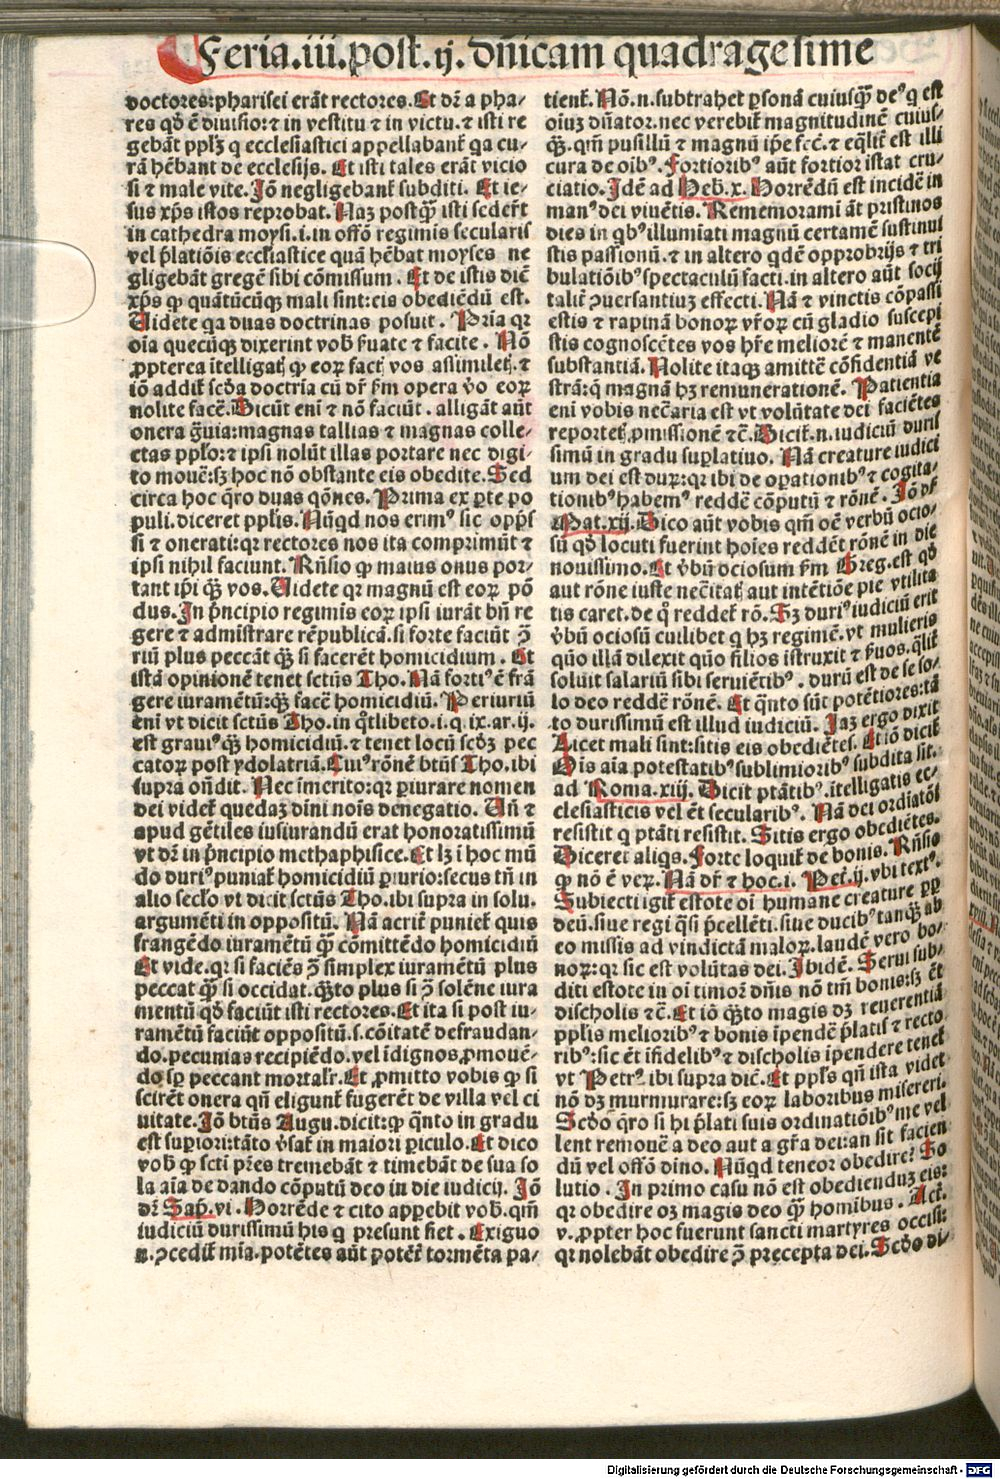 Feria.iii.post.ij.dñicam quadragesime
doctores:pharisei erãt rectores.Et dr̃ a pha-
res qđ ẽ diuisio:⁊ in vestitu ⁊ in victu.⁊ isti re
gebãt pplꝫ q ecclesiastici appellabant̃ qa cu-
rã hẽbant de ecclesijs. Et isti tales erãt vicio
si ⁊ male vite. Jõ negligebant̃ subditi. Et ie-
sus xp̃s istos reprobat. Naz postꝙ̃ isti seder̃t
in cathedra moysi.i.in offõ regimis secularis
vel p̃latiõis ecclesiastice quã hẽbat moyses ne
gligebãt gregẽ sibi cõmissum. Et de istis dic̃
xp̃s ꝙ quãtũcũqꝫ mali sint:eis obediẽdũ est.
Uidete qa duas doctrinas posuit. Pr̃ia qꝛ
oĩa quecũqꝫ dixerint vob̃ ẜuate ⁊ facite. Nõ
ꝓpterea ĩtelligatj ꝙ eoꝝ factj vos assimiletj.⁊
iõ addit̃ scđa doctrĩa cũ dr̃ ẜm opera ṽo eoꝝ
nolite facẽ.Dicũt eni ⁊ nõ faciũt. alligãt aũt
onera g̃uia:magnas tallias ⁊ magnas colle-
ctas pplo̵:⁊ ipsi nolũt illas portare nec digi-
to mouẽ:sꝫ hoc nõ obstante eis obedite.Sed
circa hoc q̃ro duas qõnes. Prima ex ꝑte po
puli.diceret ppl̃s. Nũqd nos erim⁹ sic opp̃s
si ⁊ onerati:qꝛ rectores nos ita comprimũt ⁊
ipsi nihil faciunt. Rñsio ꝙ maius onus por-
tant ip̃i q̃ꝫ vos. Uidete qꝛ magnũ est eoꝝ põ
dus.In p̃ncipio regimis eoꝝ ipsi iurãt bñ re
gere ⁊ admistrare rẽpublicã.si forte faciũt ꝯ̃
riũ plus peccãt q̃ꝫ si facerẽt homicidium. Et
istã opinionẽ tenet sctũs Tho. Nã forti⁹ ẽ frã
gere iuramẽtũ:q̃ꝫ facẽ homicidiũ. Periuriũ
eni vt dicit sctũs Tho.in q̃tlibeto.i.q.ix.ar.ij.
est graui⁹ q̃ꝫ homicidiũ.⁊ tenet locũ scđꝫ pec
catoꝝ post ydolatriã.Cui⁹ rõnẽ btũs Tho.ibi
supra oñdit. Nec ĩmerito:qꝛ ꝑiurare nomen
dei videt̃ quedaꝫ dini noĩs denegatio. Uñ ⁊
apud gẽtiles iusiurandũ erat honoratissimũ
vt dr̃ in p̃ncipio methaphisice.Et lꝫ ĩ hoc mũ
do duri⁹ puniat̃ homicidiũ ꝑiurio:secus tñ in
alio seclo̵ vt dicit sctũs Tho.ibi supra in solu.
argumẽti in oppositũ. Nã acrit̃ puniet̃ quis
frangẽdo iuramẽtũ ꝙ̃ cõmittẽdo homicidiũ
Et vide.qꝛ si faciẽs ꝯ̃ simplex iuramẽtũ plus
peccat ꝙ̃ si occidat.q̃ꝫto plus si ꝯ̃ solẽne iura
mentũ qđ faciũt isti rectores.Et ita si post iu-
ramẽtũ faciũt oppositũ.s.cõitatẽ defraudan-
do.pecunias recipiẽdo.vel ĩdignos ꝓmouẽ-
do sꝑ peccant mortalr̃.Et ꝓmitto vobis ꝙ si
scirẽt onera qñ eligunt̃ fugerẽt de villa vel ci
uitate. Jõ btũs Augu.dicit:ꝙ q̃nto in gradu
est superiori:tãto ṽsat̃ in maiori ꝑiculo.Et dico
vob̃ ꝙ scti pr̃es tremebãt ⁊ timebãt de sua so
la aĩa de dando cõputũ deo in die iudicij. Jõ
dr̃ Sap̃.vi. Horrẽde ⁊ cito apꝑebit vob̃.qm̃
iudiciũ durissimũ his q presunt fiet. Exiguo
n.ꝯcedit̃ mĩa.potẽtes aũt potẽt̃ tormẽta pa-
tient̃. Nõ.n.subtrahet ꝑsonã cuiusꝙ̃ de⁹ q est
oĩuꝫ dñator.nec verebit̃ magnitudinẽ cuius-
q̃ꝫ.qm̃ pusillũ ⁊ magnũ ip̃e fec̃.⁊ eq̃lit̃ est illi
cura de oib⁹. Fortiorib⁹ aũt fortior ĩstat cru-
ciatio. Idẽ ad Heb.x. Horrẽdũ est incidẽ in
man⁹ dei viuẽtis. Rememorami ãt pristinos
dies in qb⁹ illumĩati magnũ certamẽ sustinui
stis passionũ.⁊ in altero qdẽ opprobrijs ⁊ tri
bulatiõib⁹ spectaculũ facti.in altero aũt socij
talit̃ ꝯuersantiuꝫ effecti. Nã ⁊ vinctis cõpassi
estis ⁊ rapinã bonoꝝ vr̃oꝝ cũ gladio suscepi
stis cognoscẽtes vos hr̃e meliorẽ ⁊ manentẽ
substantiã. Nolite itaqꝫ amittẽ cõfidentiã ve
strã:q magnã hꝫ remunerationẽ. Patientia
eni vobis nec̃aria est vt volũtatẽ dei faciẽtes
reportetj ꝓmissionẽ ⁊c̃.Dicit̃.n.iudiciũ duris
simũ in gradu suꝑlatiuo. Nã creature iudici
um dei est duꝝ:qꝛ ibi de oꝑationib⁹ ⁊ cogita-
tionib⁹ habem⁹ reddẽ cõputũ ⁊ rõnẽ. Jõ dr̃
Mat.xij.Dico aũt vobis qm̃ oẽ verbũ ocio-
sũ qđ locuti fuerint hoĩes reddẽt rõnẽ in die
nouissimo.Et ṽbũ ociosum ẜm Greg.est qđ
aut rõne iuste nec̃itatj aut intẽtiõe pie vtilita
tis caret.de q̃ reddet̃ rõ. Sꝫ duri⁹ iudiciũ erit
ṽbũ ociosũ cuilibet q hꝫ regimẽ.vt mulieris
quõ illã dilexit quõ filios ĩstruxit ⁊ ẜuos.q̃lit̃
soluit salariũ sibi seruiẽtib⁹. durũ est de se so-
lo deo reddẽ rõnẽ. Et q̃nto sũt potẽtiores:tã
to durissimũ est illud iudiciũ. Jaꝫ ergo dixit
Licet mali sint:sitis eis obediẽtes. Et iõ dicit̃
Ois aĩa potestatib⁹ sublimiorib⁹ subdita sit.
ad Roma.xiij. Dicit ptãtib⁹.ĩtelligatis ec-
clesiasticis vel ẽt secularib⁹. Nã dei ordĩatõi
resistit q ptãti resistit. Sitis ergo obediẽtes.
Diceret aliqs.forte loquit̃ de bonis. Rñsio
ꝙ nõ ẽ veꝝ. Nã dr̃ ⁊ hoc.i. Pet̃.ij.vbi text⁹.
Subiecti igit̃ estote oĩ humane creature ꝓp
deũ.siue regi q̃si p̃cellẽti.siue ducib⁹ tanq̃ꝫ ab
eo missis ad vindictã maloꝝ.laudẽ vero bo-
noꝝ:qꝛ sic est volũtas dei. Ibidẽ. Serui sub-
diti estote in oĩ timoꝛ dñis nõ tm̃ bonis:sꝫ ẽt
discholis ⁊c̃.Et iõ q̃ꝫto magis dꝫ reuerentiã
ppl̃s meliorib⁹ ⁊ bonis ĩpendẽ p̃latis ⁊ recto
rib⁹:sic ẽt ĩfidelib⁹ ⁊ discholis ĩpendere tenet̃
vt Petr⁹ ibi supra dic̃.Et ppl̃s qñ ista videt
nõ dꝫ murmurare:sꝫ eoꝝ laboribus misereri.
Scđo q̃ro si hi p̃lati suis ordinatiõib⁹ me vel
lent remouẽ a deo aut a gr̃a dei:an sit facien
dũ vel offõ dino. Nũqd teneor obedire? So
lutio. In primo casu nõ est obediendũꝫ eis:
qꝛ obedire oꝫ magis deo ꝙ̃ homibus. Act.
v.ꝓpter hoc fuerunt sancti martyres occisi:
qꝛ nolebãt obedire ꝯ̃ precepta dei.Scđo di-
Digitalisierung gefördert durch die Deutsche Forschungsgemeinschaft - DFG